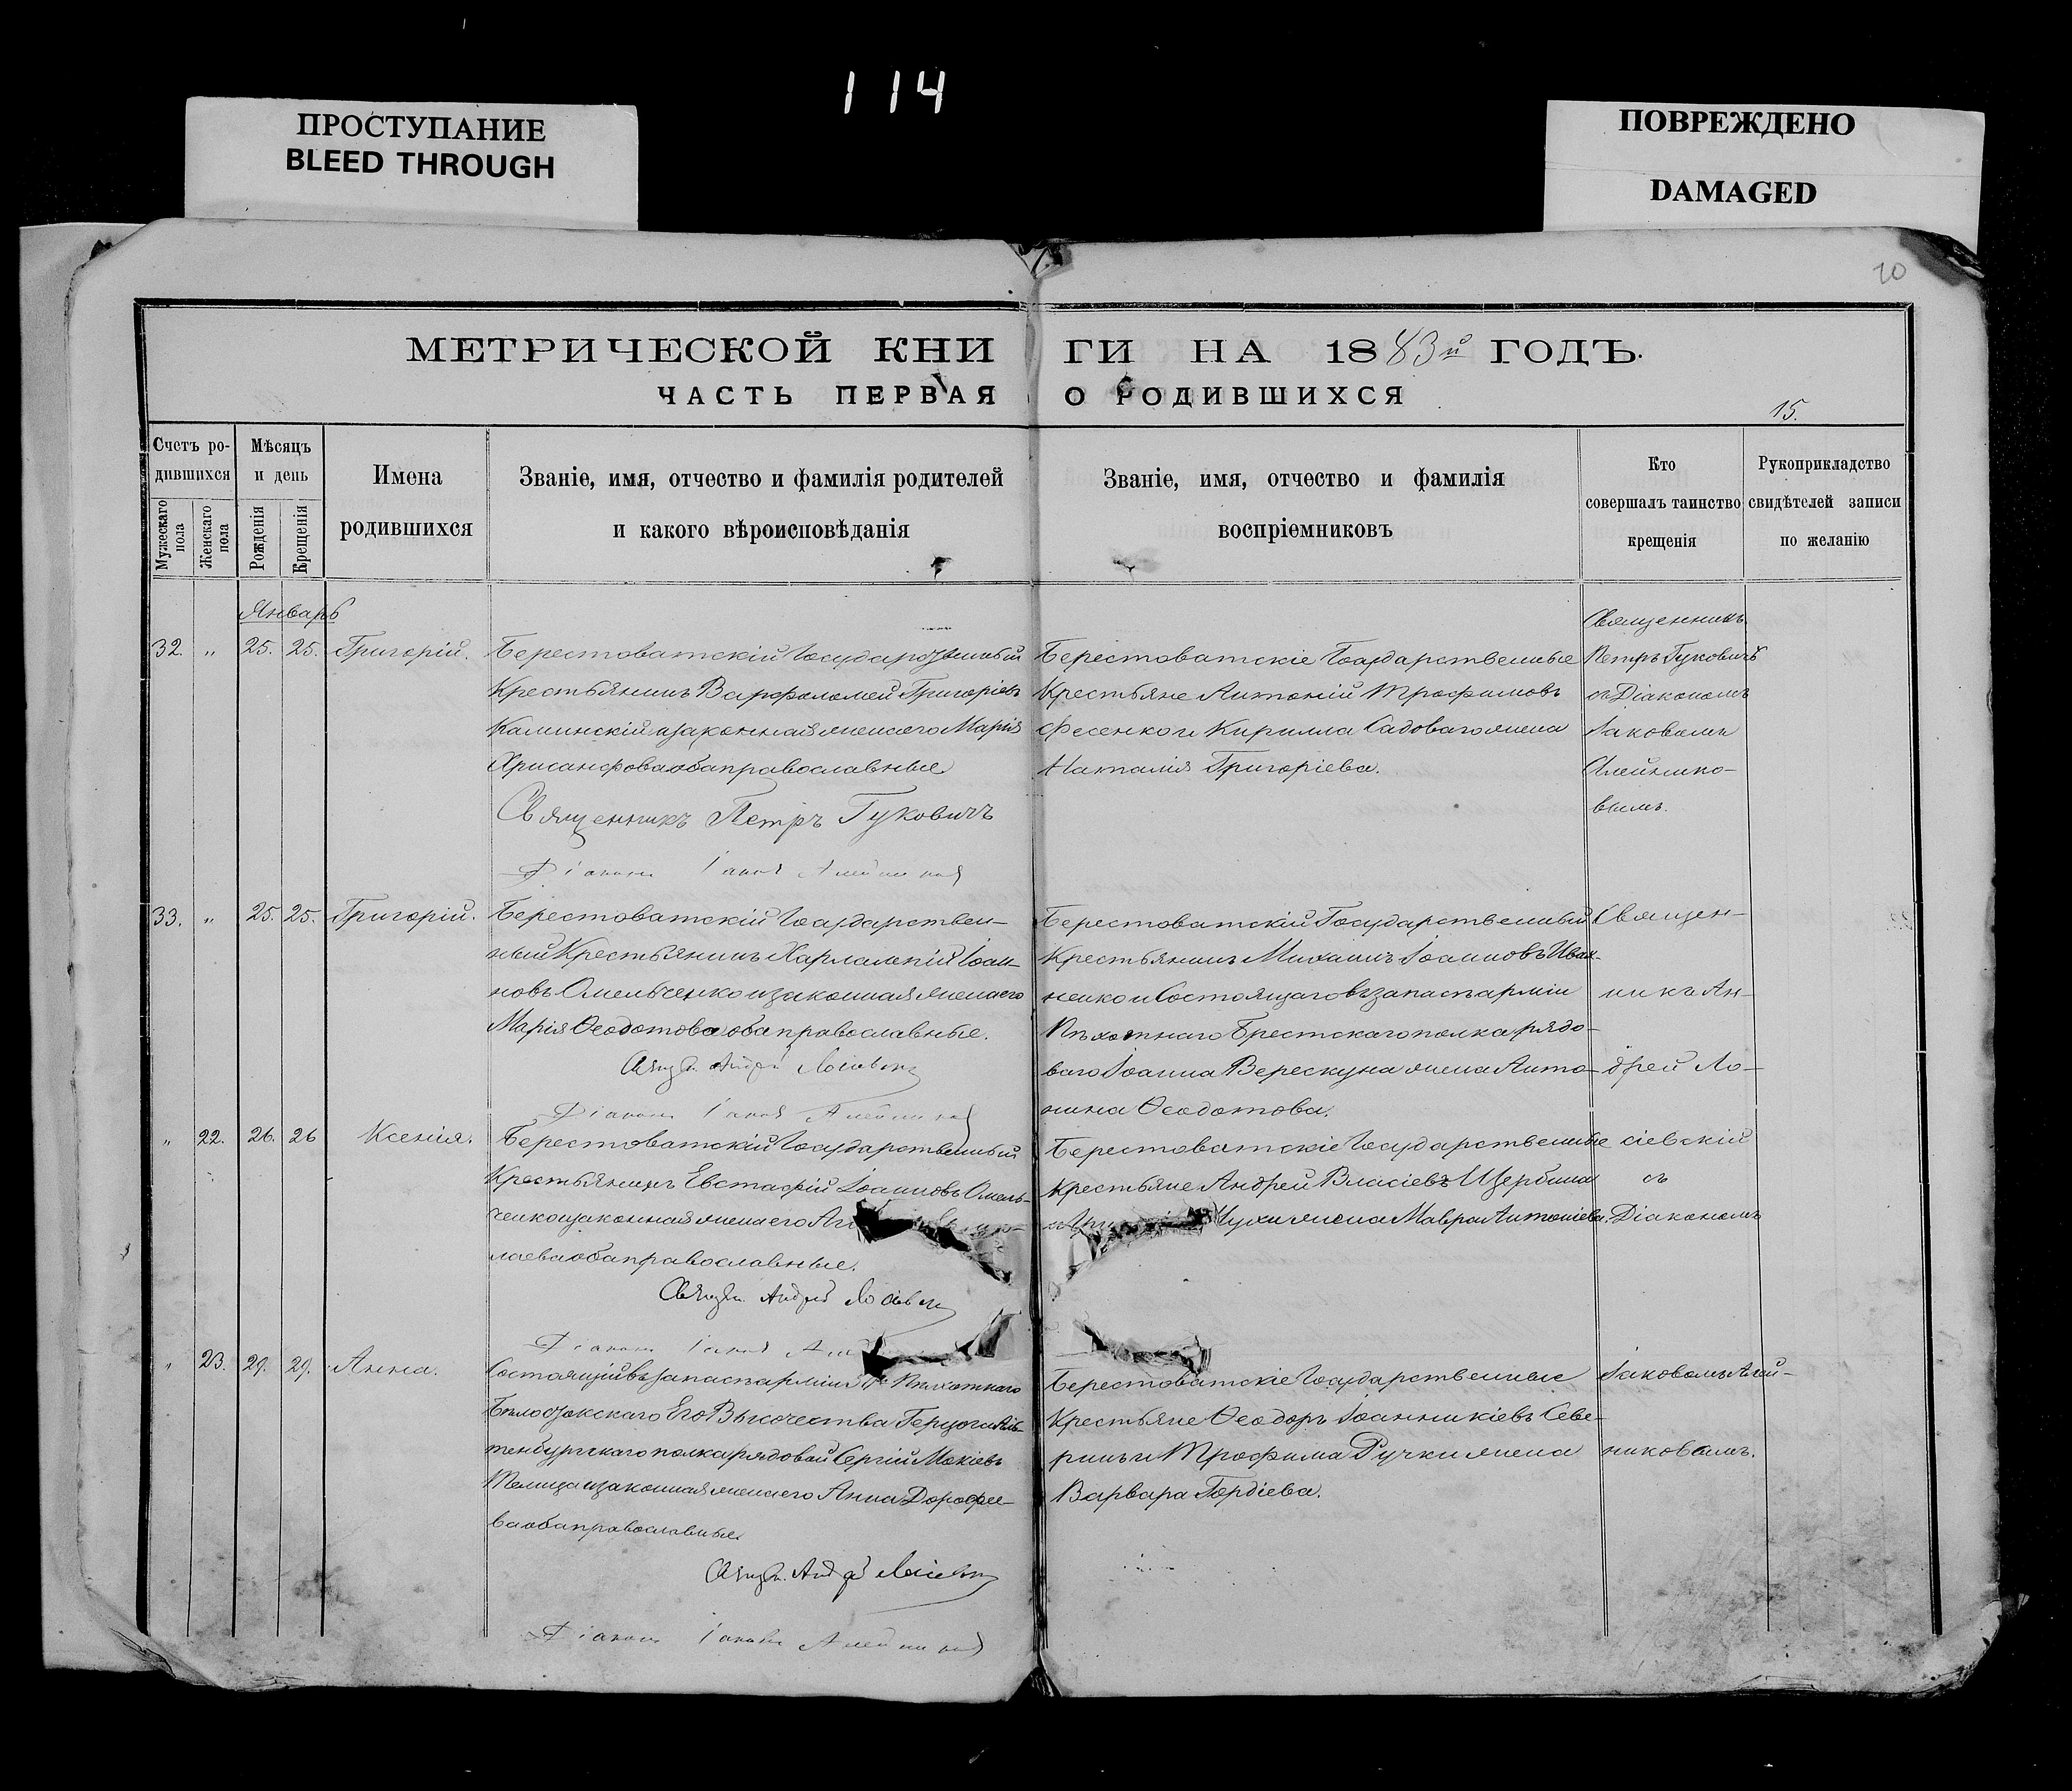 114
ПРОСТУПАНИЕ
BLEED THROUGH
ПОВРЕЖДЕНО
DAMAGED
МЕТРИЧЕСКОЙ КНИГИ НА 1883й ГОДЪ.
ЧАСТЬ ПЕРВАЯ О РОДИВШИХСЯ
15.
Счетъ ро-
дившихся
Мужескаго пола
Женскаго пола
Мѣсяцъ
и день
Рожденія
Крещенія
Имена
родившихся
Званіе, имя, отчество и фамилія родителей
и какого вѣроисповѣданія
Званіе, имя, отчество и фамилія
воспріемниковъ
Кто
совершалъ таинство
крещенія
Рукоприкладство
свидѣтелей записи
по желанію
Январь
32. „ 25. 25. Григорій.
Берестоватскій Государственный
Крестьянинъ Варфоломей Григоріевъ
Каминскій и законная жена его Марія
Хрисанфова оба православные
Священникъ Петръ Гуковичъ
Діаконъ Іаковъ Алейников
Берестоватскіе Государственные
Крестьяне Антоній Трофимовъ
Фесенко и Кирилла Садоваго жена
Наталія Григоріева.
Священникъ
Петръ Гуковичъ
съ Діакономъ
Іаковомъ
Алейнико-
вымъ.
33. „ 25. 25. Григорій.
Берестоватскій Государствен-
ный Крестьянинъ Харлампій Іоан-
новъ Омельченко и законная жена его
Марія Ѳеодотова оба православные.
Діаконъ Іаковъ Алейников
Берестоватскій Государственный
Крестьянинъ Михаилъ Іоанновъ Иван-
ненко и Состоящаго въ запасѣ арміи
Пѣхотнаго Брестскаго полка рядо-
ваго Іоанна Верескуна жена Анто-
нина Ѳеодотова.
Священ-
никъ Ан-
дрей Ло-
„ 22. 26. 26 Ксенія.
Берестоватскій Государственный
Крестьянинъ Евстафій Іоанновъ Омель-
ченко и законная жена его
лаева оба православные.
Діаконъ Іаковъ
Берестоватскіе Государственные
Крестьяне Андрей Власіевъ Щербина
жена Мавра Антоніева.
сіевскій
съ
Діакономъ
„ 23. 29. 29. Анна.
Состоящій въ запасѣ арміи Пѣхотнаго
Бѣлостокскаго Его Высочества Герцога Аль-
тенбургскаго полка рядовой Сергій Мокіевъ
Телица и законная жена его Анна Дорофее-
ва оба православные
Діаконъ Іаковъ Алейников
Берестоватскіе Государственные
Крестьяне Ѳеодоръ Іоанникіевъ Севе-
ринъ и Трофима Ручки жена
Варвара Гордіева.
Іаковомъ Алей-
никовымъ.